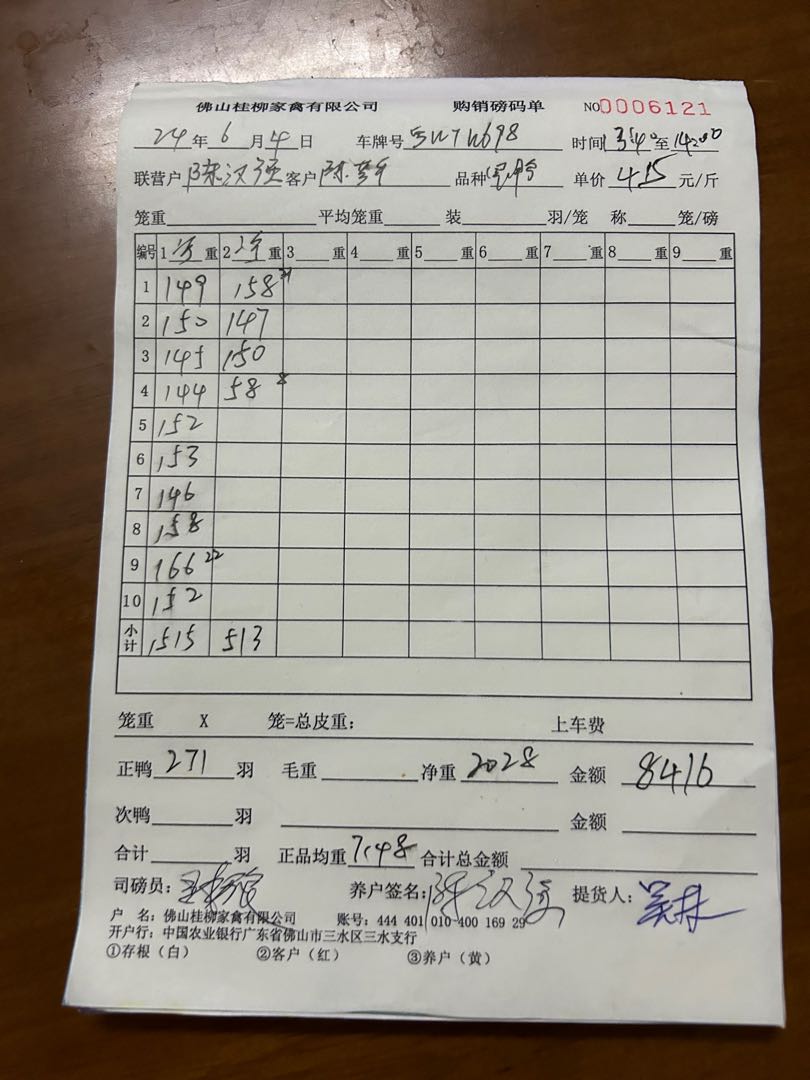 佛山桂柳家禽有限公司 购销磅码单 NO0006121
24年6月4日 车牌号 时间 3:40至14:00
联营户 陈汉强 客户 陈 品种 单价 4.15 元/斤
笼重 平均笼重 装 羽/笼 称 笼/磅
编号 1 重 2 重 3 重 4 重 5 重 6 重 7 重 8 重 9 重
1 149 158
2 150 147
3 145 150
4 144 58 8
5 152
6 153
7 146
8 158
9 166 22
10 152
小计 1515 513
笼重 X 笼=总皮重: 上车费
正鸭 271 羽 毛重 净重 2028 金额 8416
次鸭 羽 金额
合计 羽 正品均重 7.48 合计总金额
司磅员: 养户签名: 陈汉强 提货人:
户 名: 佛山桂柳家禽有限公司 账号: 444 401 010 400 169 29
开户行: 中国农业银行广东省佛山市三水区三水支行
①存根(白) ②客户(红) ③养户(黄)